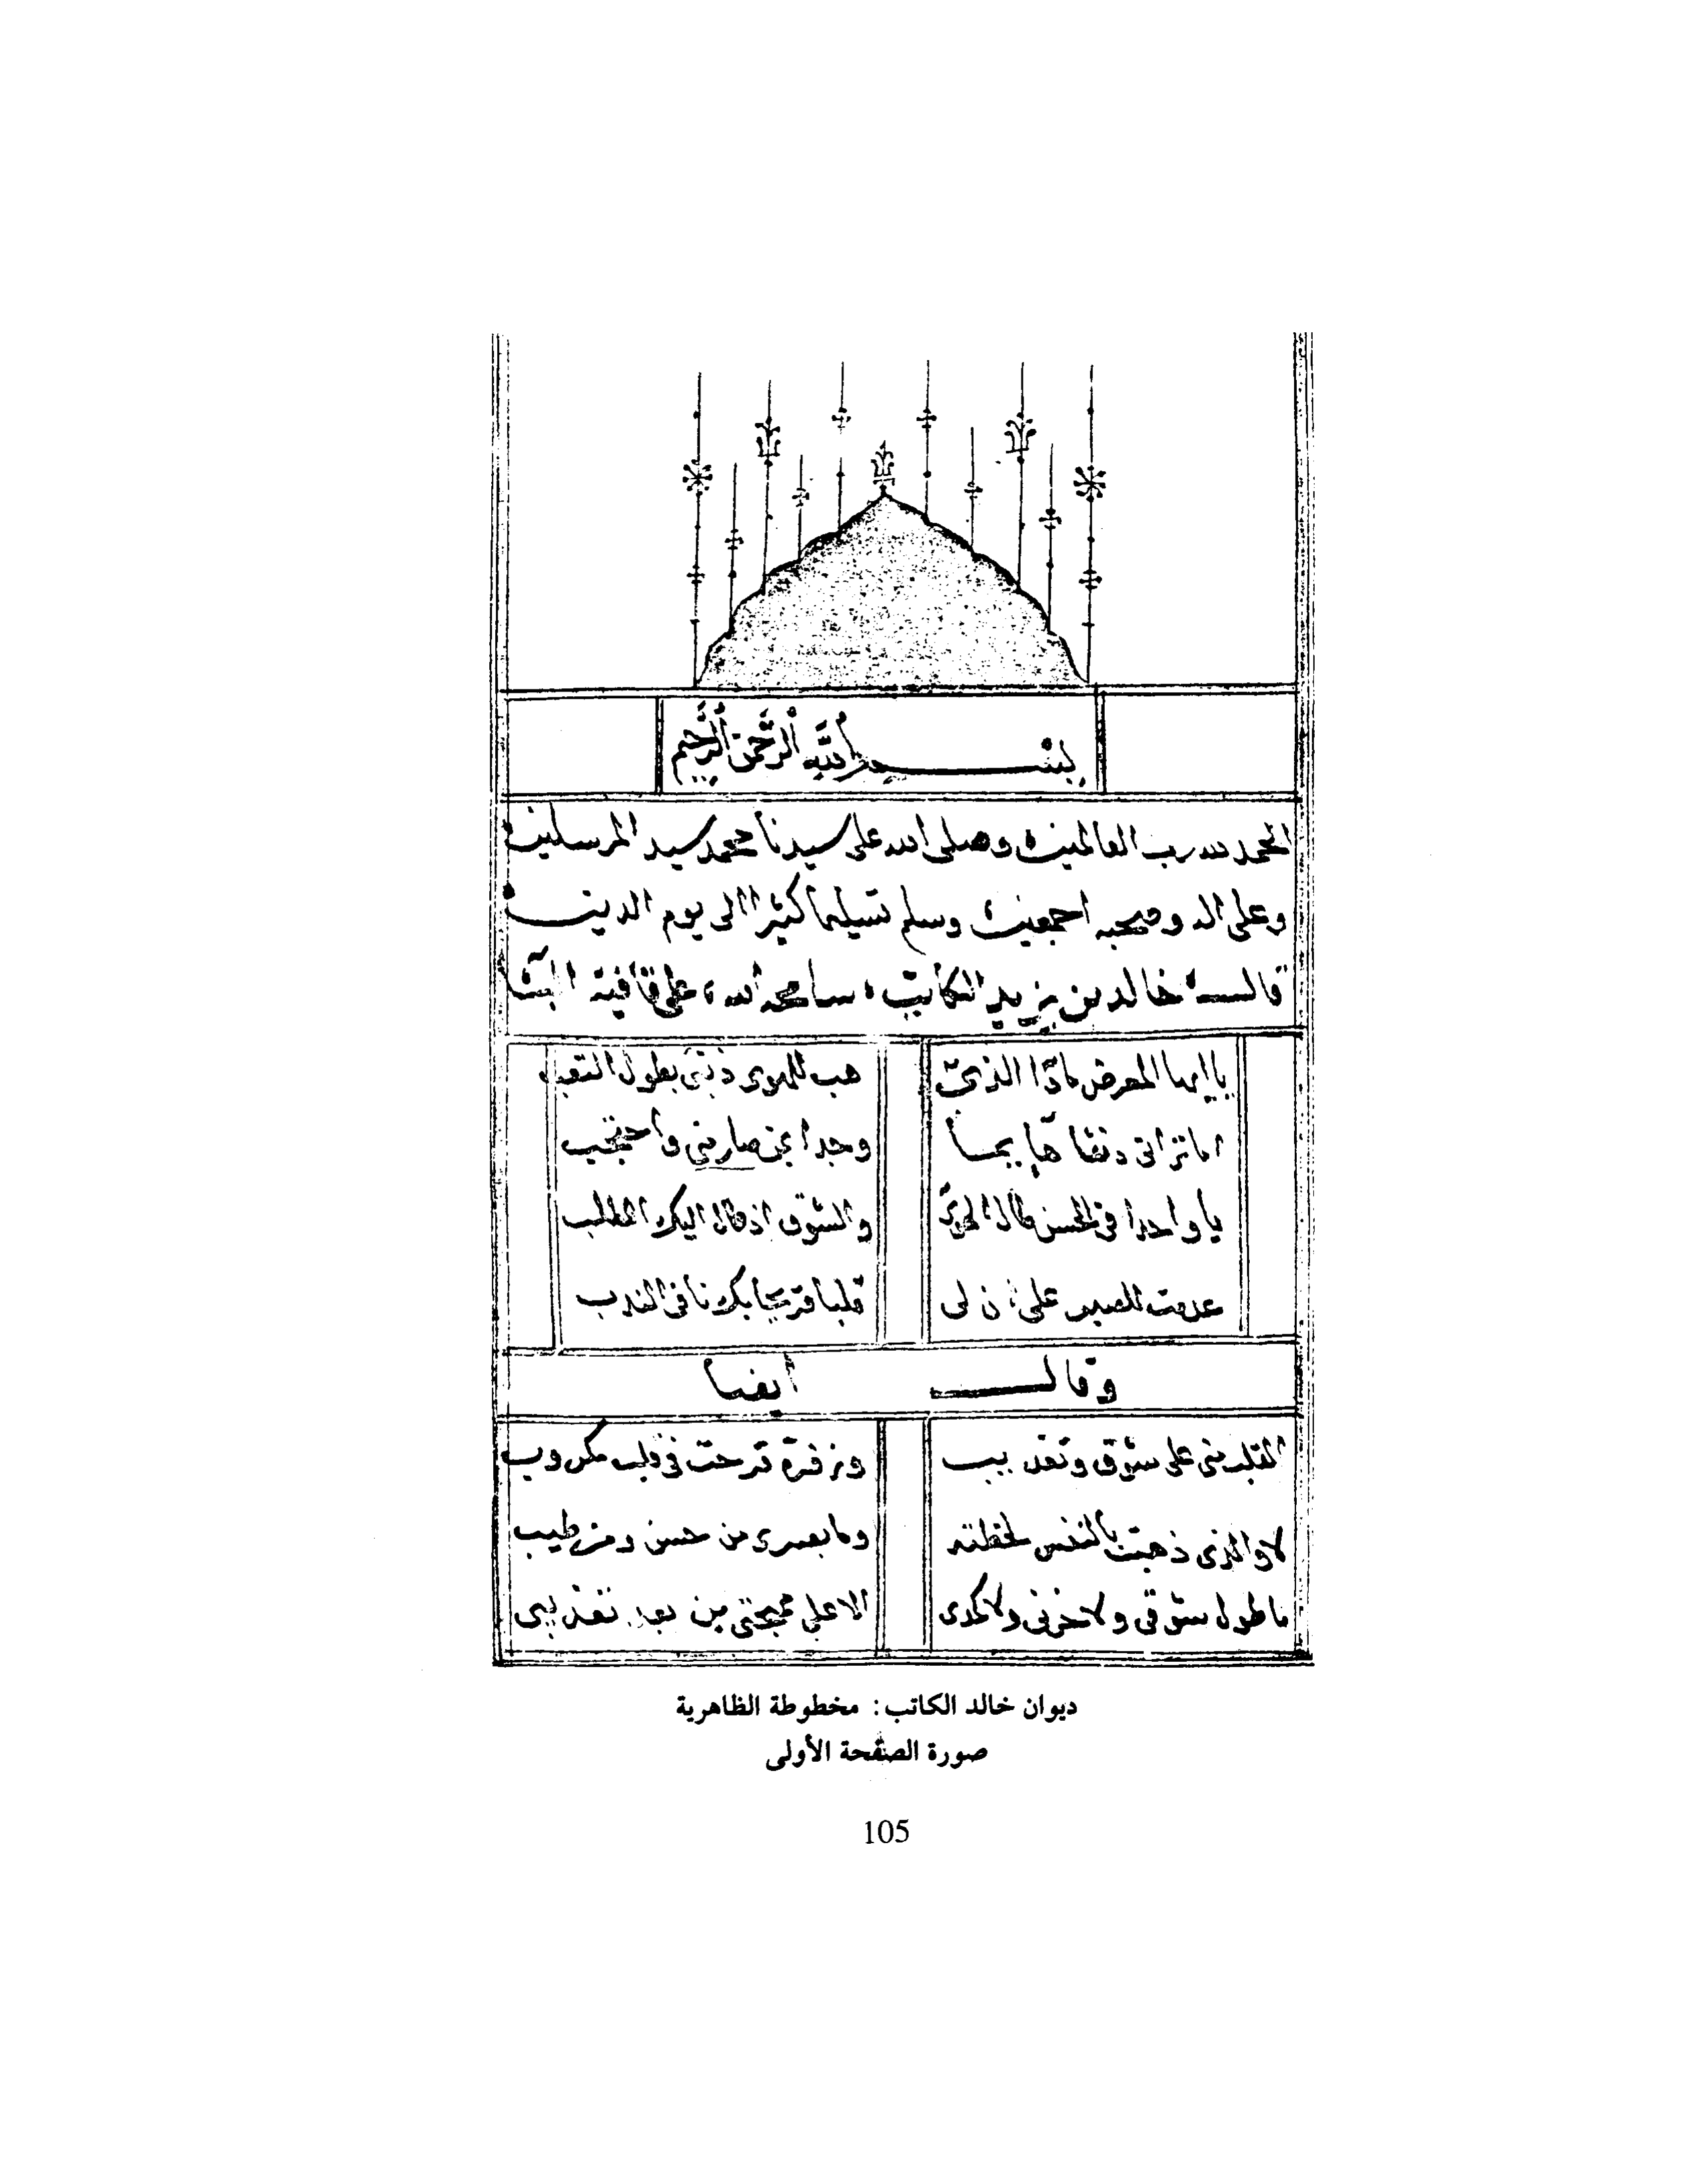 بسم الله الرحمن الرحيم
الحمد لله رب العالمين وصلى الله على سيدنا محمد سيد المرسلين
وعلى اله وصحبه اجمعين وسلم تسليما كثيرا الى يوم الدين
قال خالد بن يزيد الكاتب سامحه الله على قافية البا
يا ايها المعرض ماذا الذي هب للهوى ذنبي بطول التعب
اما تراني دنفا هايما وجدا بمن صار مني واحتجب
يا واحدا في الحسن طال والشوق اذ طال اليك الطلب
عدمت الصبر على ان لي قلبا قريحا بك نا في الندب
وقال ايضا
القلب مني على شوق وتعذيب وزفرة قرحت في قلب مكروب
لا والذي ذهبت بالنفس لحظته وما بعيني من حسن ومن طيب
ما طول شوقي ولا حزني ولا كمدي الا على مهجتي من بعد تعذيبي
ديوان خالد الكاتب: مخطوطة الظاهرية
صورة الصفحة الأولى
105